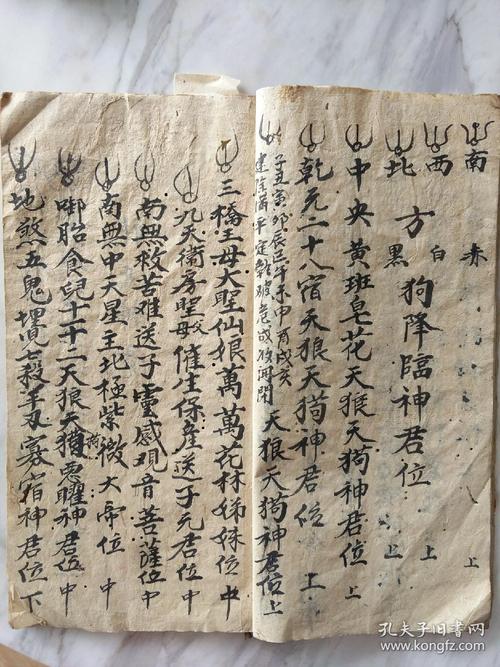 南 赤
西 白 方 狗降臨神君位 上
北 黑 上
中央黄班皂花天狼天狗神君位 上
乾元二十八宿天狼天狗神君位 上
子丑寅卯辰巳午未申酉戌亥
建除滿平定執破危成收開閉 天狼天狗神君位上
三橋王母大聖仙娘萬萬花林姊妹位 中
九天衛房聖母催生保產送子元君位 中
南無救苦難送子靈感观音菩薩位 中
南無中天星王北極紫微大帝位 中
啣胎食兒十二天狼天狗惡曜神君位 中
地煞五鬼埋兒七殺羊刃寡宿神君位 下
孔夫子旧书网
www.kongfz.com